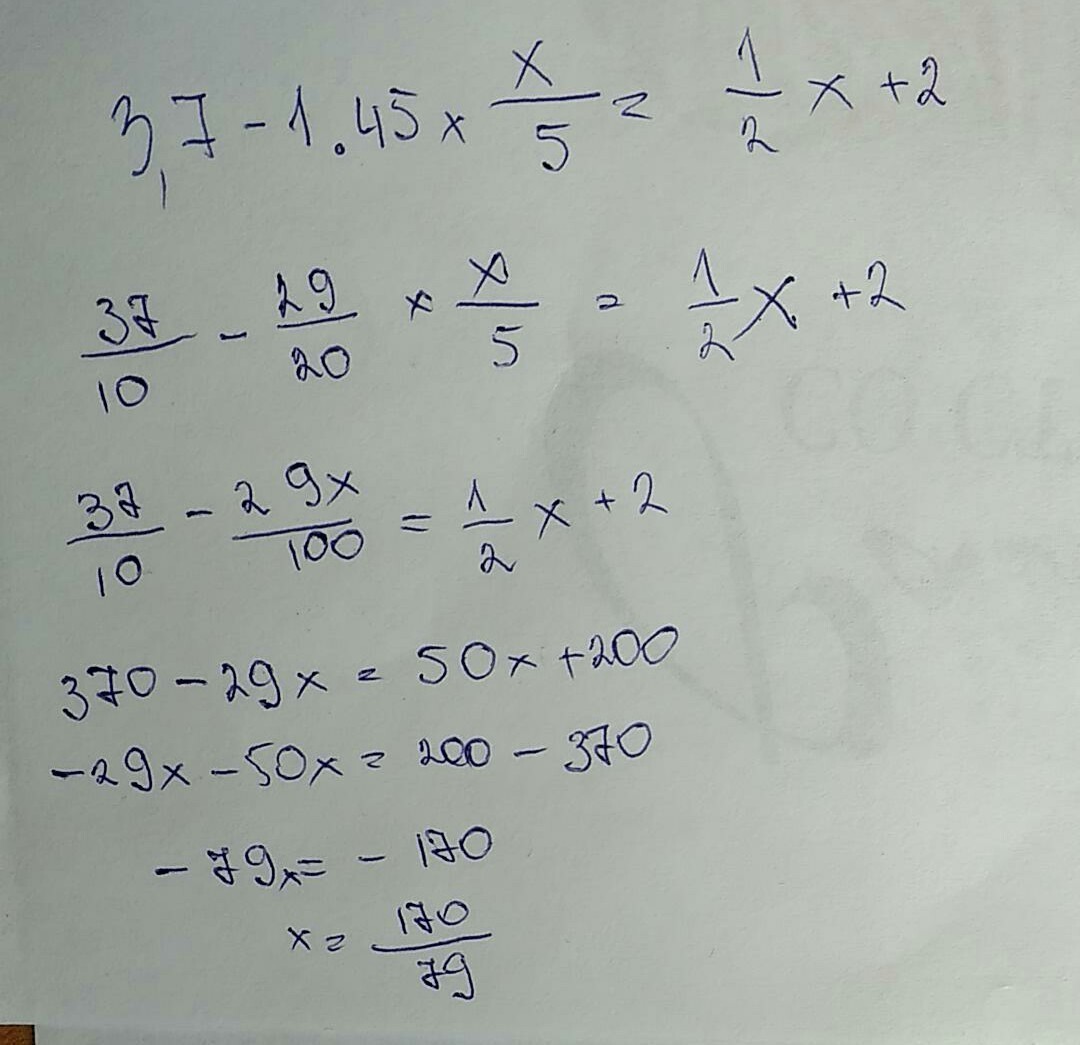 3,7 - 1.45 × x/5 = 1/2 x + 2
37/10 - 29/20 × x/5 = 1/2 x + 2
37/10 - 29x/100 = 1/2 x + 2
370 - 29x = 50x + 200
-29x - 50x = 200 - 370
-79x = -170
x = 170/79